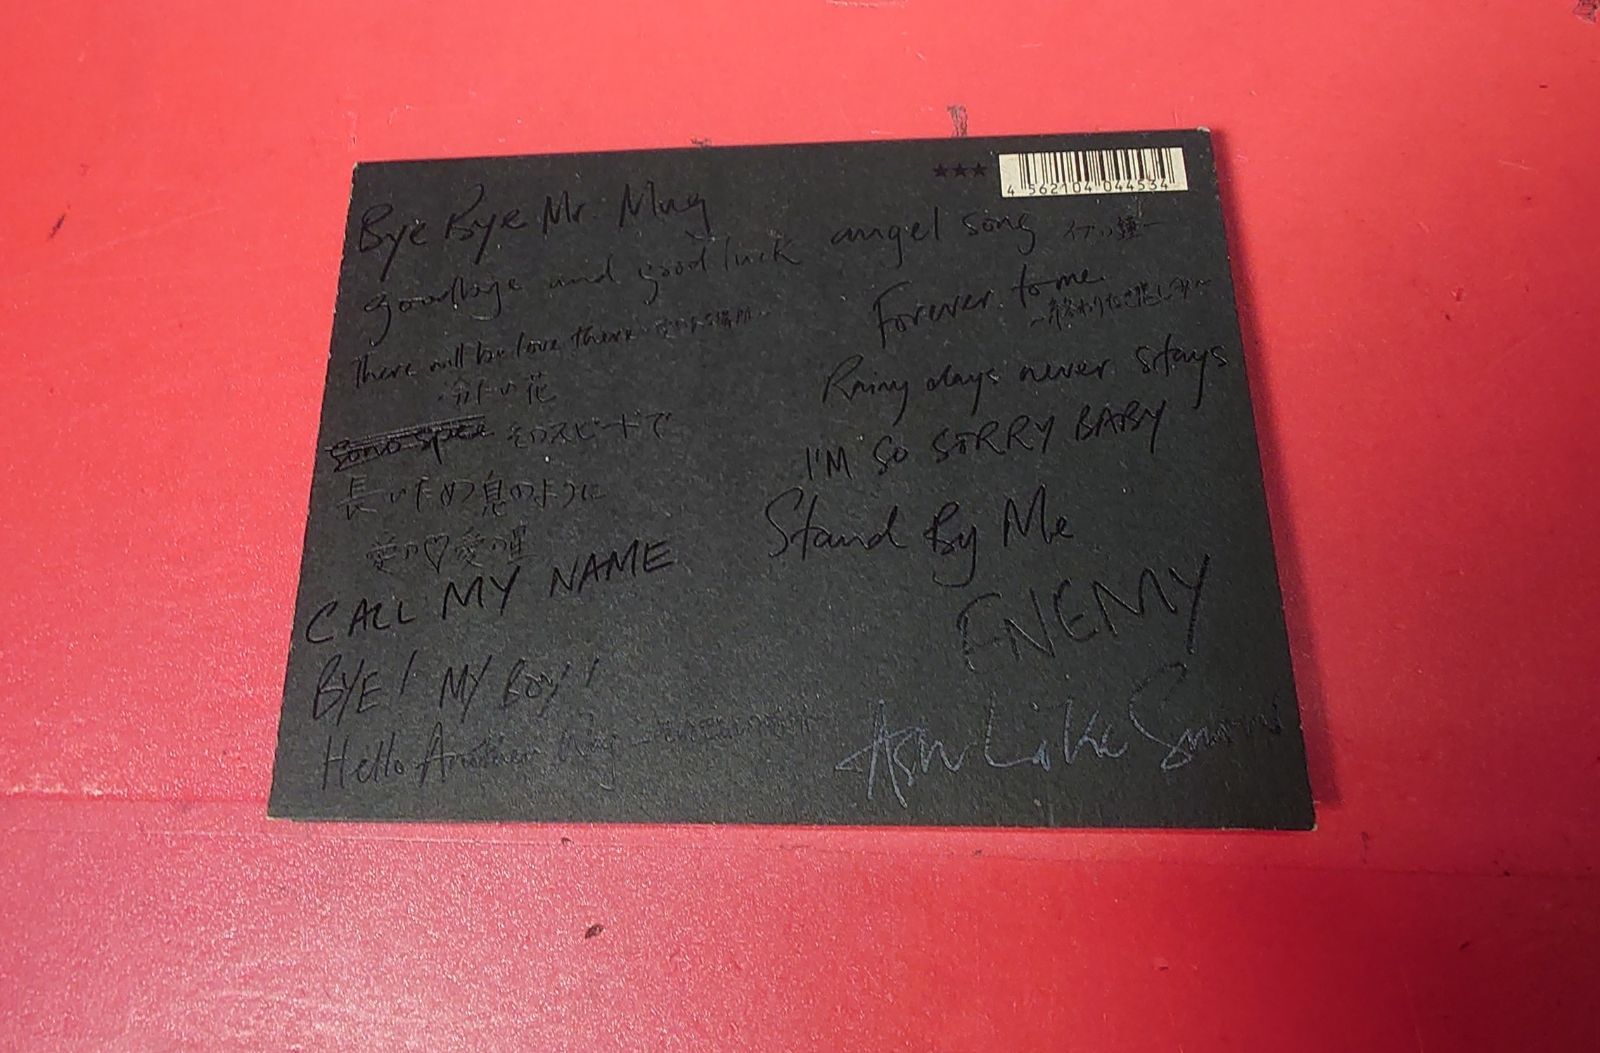 ★★★
4 562104 044534
Bye Bye Mr. Mug
goodbye and good luck
There will be love there -愛のある場所-
冷たい花
Sono spee そのスピードで
長いため息のように
愛の♡愛の星
CALL MY NAME
BYE! MY Boy!
Hello Another Way -それぞれの場所-
angel song -イヴの鐘-
Forever to me
~終わりなき悲しみ~
Rainy days never stays
I'M SO SORRY BABY
Stand By Me
ENEMY
Ash Like Snow